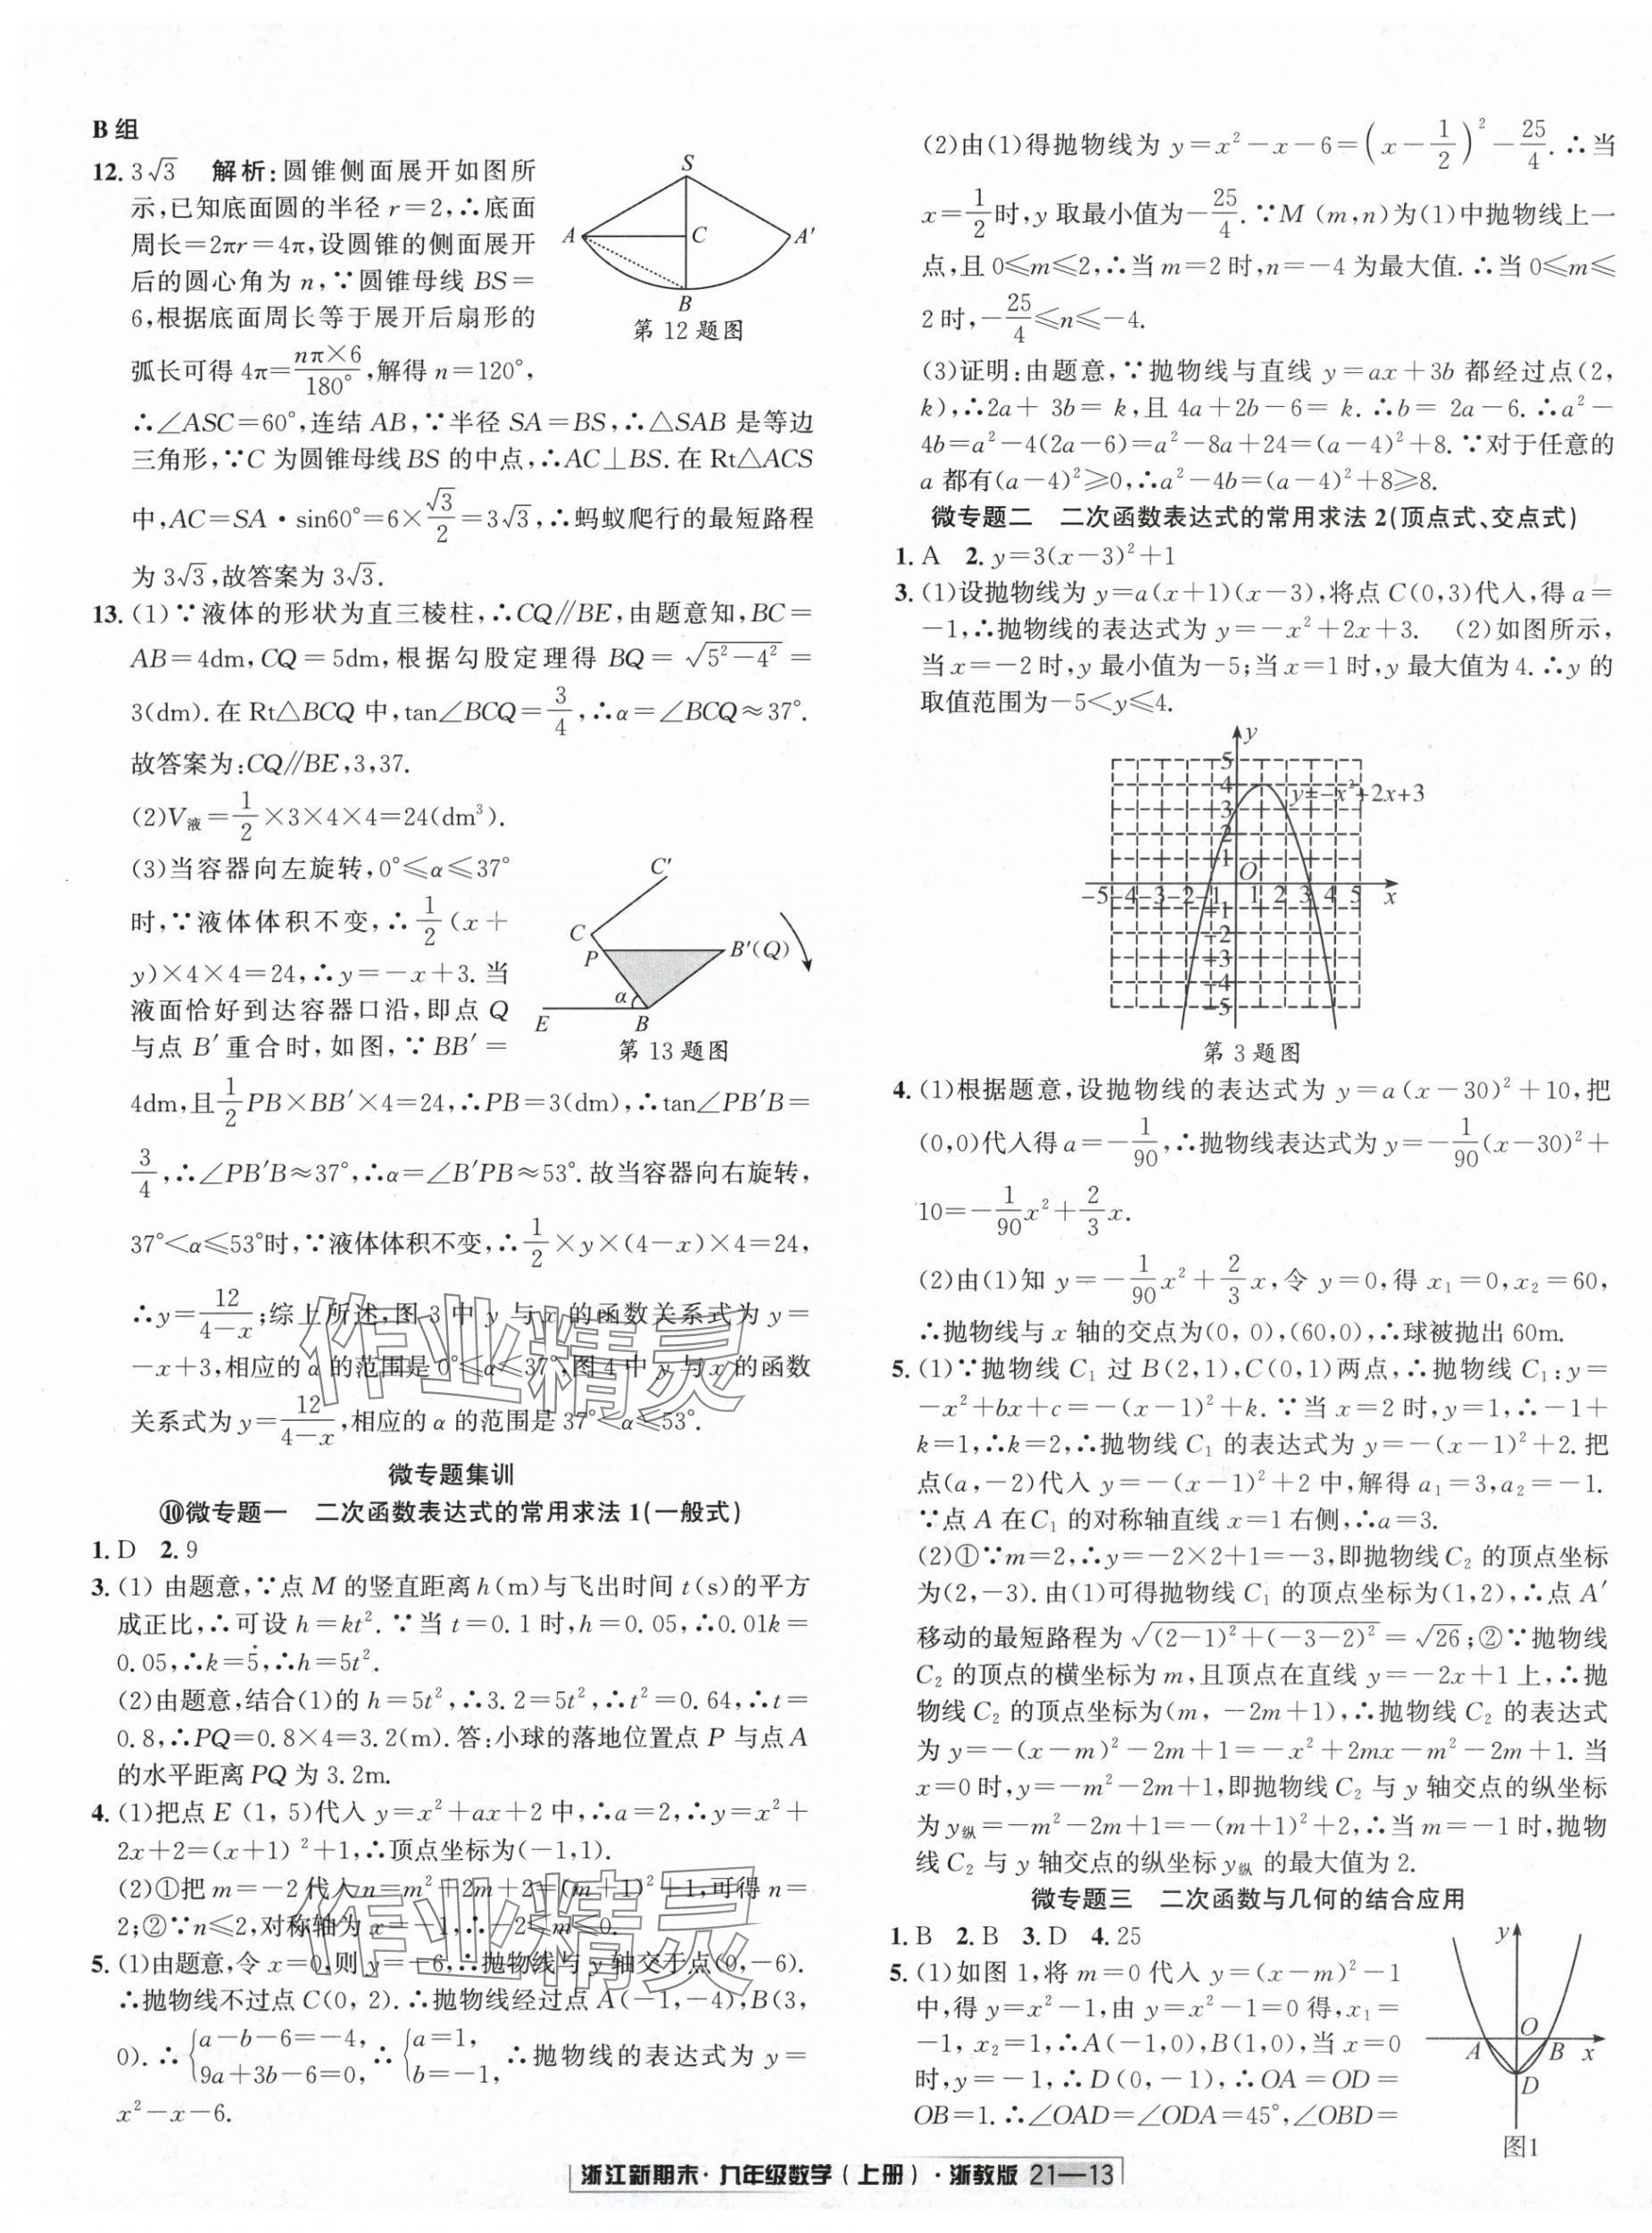 B 组
12. 3√3　解析:圆锥侧面展开如图所
示,已知底面圆的半径 r=2,∴底面
周长=2πr=4π,设圆锥的侧面展开
后的圆心角为 n,∵圆锥母线 BS=
6,根据底面周长等于展开后扇形的
弧长可得 4π=nπ×6/180°,解得 n=120°,
S
A
C
A′
B
第 12 题图
∴∠ASC=60°,连结 AB,∵半径 SA=BS,∴△SAB 是等边
三角形,∵C 为圆锥母线 BS 的中点,∴AC⊥BS. 在 Rt△ACS
中,AC=SA·sin60°=6×√3/2=3√3,∴蚂蚁爬行的最短路程
为 3√3,故答案为 3√3.
13. (1)∵液体的形状为直三棱柱,∴CQ∥BE,由题意知,BC=
AB=4dm,CQ=5dm,根据勾股定理得 BQ=√(5²-4²)=
3(dm). 在 Rt△BCQ 中,tan∠BCQ=3/4,∴α=∠BCQ≈37°.
故答案为:CQ∥BE,3,37.
(2)V液=1/2×3×4×4=24(dm³).
(3)当容器向左旋转,0°≤α≤37°
时,∵液体体积不变,∴1/2(x+
y)×4×4=24,∴y=-x+3. 当
液面恰好到达容器口沿,即点 Q
与点 B′重合时,如图,∵BB′=
C′
C
P
B′(Q)
α
E
B
第 13 题图
4dm,且1/2PB×BB′×4=24,∴PB=3(dm),∴tan∠PB′B=
3/4,∴∠PB′B≈37°,∴α=∠B′PB≈53°. 故当容器向右旋转,
37°<α≤53°时,∵液体体积不变,∴1/2×y×(4-x)×4=24,
∴y=12/(4-x);综上所述,图 3 中 y 与 x 的函数关系式为 y=
-x+3,相应的 α 的范围是 0°≤α≤37°,图 4 中 y 与 x 的函数
关系式为 y=12/(4-x),相应的 α 的范围是 37°<α≤53°.
微专题集训
⑩微专题一　二次函数表达式的常用求法 1(一般式)
1. D　2. 9
3. (1) 由题意,∵点 M 的竖直距离 h(m)与飞出时间 t(s)的平方
成正比,∴可设 h=kt². ∵当 t=0.1 时,h=0.05,∴0.01k=
0.05,∴k=5,∴h=5t².
(2)由题意,结合(1)的 h=5t²,∴3.2=5t²,∴t²=0.64,∴t=
0.8,∴PQ=0.8×4=3.2(m). 答:小球的落地位置点 P 与点 A
的水平距离 PQ 为 3.2m.
4. (1)把点 E (1,5)代入 y=x²+ax+2 中,∴a=2,∴y=x²+
2x+2=(x+1)²+1,∴顶点坐标为(-1,1).
(2)①把 m=-2 代入 n=m²+2m+2=(m+1)²+1,可得 n=
2;②∵n≤2,对称轴为 x=-1,∴-2≤m≤0.
5. (1)由题意,令 x=0,则 y=-6,∴抛物线与 y 轴交于点(0,-6).
∴抛物线不过点 C(0,2). ∴抛物线经过点 A(-1,-4),B(3,
0). ∴{a-b-6=-4, 9a+3b-6=0, ∴{a=1, b=-1, ∴抛物线的表达式为 y=
x²-x-6.
(2)由(1)得抛物线为 y=x²-x-6=(x-1/2)²-25/4. ∴当
x=1/2时,y 取最小值为-25/4. ∵M (m,n)为(1)中抛物线上一
点,且 0≤m≤2,∴当 m=2 时,n=-4 为最大值. ∴当 0≤m≤
2 时,-25/4≤n≤-4.
(3)证明:由题意,∵抛物线与直线 y=ax+3b 都经过点(2,
k),∴2a+3b=k,且 4a+2b-6=k. ∴b=2a-6. ∴a²-
4b=a²-4(2a-6)=a²-8a+24=(a-4)²+8. ∵对于任意的
a 都有(a-4)²≥0,∴a²-4b=(a-4)²+8≥8.
微专题二　二次函数表达式的常用求法 2(顶点式、交点式)
1. A　2. y=3(x-3)²+1
3. (1)设抛物线为 y=a(x+1)(x-3),将点 C(0,3)代入,得 a=
-1,∴抛物线的表达式为 y=-x²+2x+3.　(2)如图所示,
当 x=-2 时,y 最小值为-5;当 x=1 时,y 最大值为 4. ∴y 的
取值范围为-5<y≤4.
y
5
4
y=-x²+2x+3
3
2
1
O
-5 -4 -3 -2 -1 1 2 3 4 5 x
-1
-2
-3
-4
-5
第 3 题图
4. (1)根据题意,设抛物线的表达式为 y=a(x-30)²+10,把
(0,0)代入得 a=-1/90,∴抛物线表达式为 y=-1/90(x-30)²+
10=-1/90x²+2/3x.
(2)由(1)知 y=-1/90x²+2/3x,令 y=0,得 x₁=0,x₂=60,
∴抛物线与 x 轴的交点为(0,0),(60,0),∴球被抛出 60m.
5. (1)∵抛物线 C₁ 过 B(2,1),C(0,1)两点,∴抛物线 C₁:y=
-x²+bx+c=-(x-1)²+k. ∵当 x=2 时,y=1,∴-1+
k=1,∴k=2,∴抛物线 C₁ 的表达式为 y=-(x-1)²+2. 把
点(a,-2)代入 y=-(x-1)²+2 中,解得 a₁=3,a₂=-1.
∵点 A 在 C₁ 的对称轴直线 x=1 右侧,∴a=3.
(2)①∵m=2,∴y=-2×2+1=-3,即抛物线 C₂ 的顶点坐标
为(2,-3). 由(1)可得抛物线 C₁ 的顶点坐标为(1,2),∴点 A′
移动的最短路程为√((2-1)²+(-3-2)²)=√26;②∵抛物线
C₂ 的顶点的横坐标为 m,且顶点在直线 y=-2x+1 上,∴抛
物线 C₂ 的顶点坐标为(m,-2m+1),∴抛物线 C₂ 的表达式
为 y=-(x-m)²-2m+1=-x²+2mx-m²-2m+1. 当
x=0 时,y=-m²-2m+1,即抛物线 C₂ 与 y 轴交点的纵坐标
为 y纵=-m²-2m+1=-(m+1)²+2,∴当 m=-1 时,抛物
线 C₂ 与 y 轴交点的纵坐标 y纵 的最大值为 2.
微专题三　二次函数与几何的结合应用
1. B　2. B　3. D　4. 25
5. (1)如图 1,将 m=0 代入 y=(x-m)²-1
中,得 y=x²-1,由 y=x²-1=0 得,x₁=
-1,x₂=1,∴A(-1,0),B(1,0),当 x=0
时,y=-1,∴D(0,-1),∴OA=OD=
OB=1. ∴∠OAD=∠ODA=45°,∠OBD=
y
O
A
B
x
D
图1
作业精灵
作业精灵
浙江新期末·九年级数学(上册)·浙教版 21—13